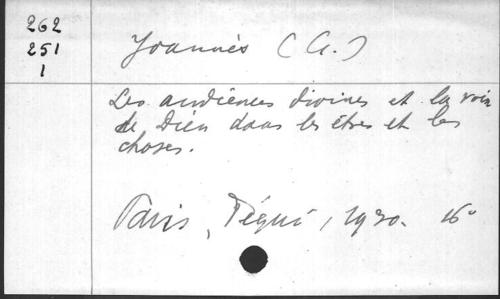 262
251
1
Joannès (A.)
Les audiences divines et la voix
de Dieu dans les êtres et les
choses.
Paris, Téqui, 1920. 16°